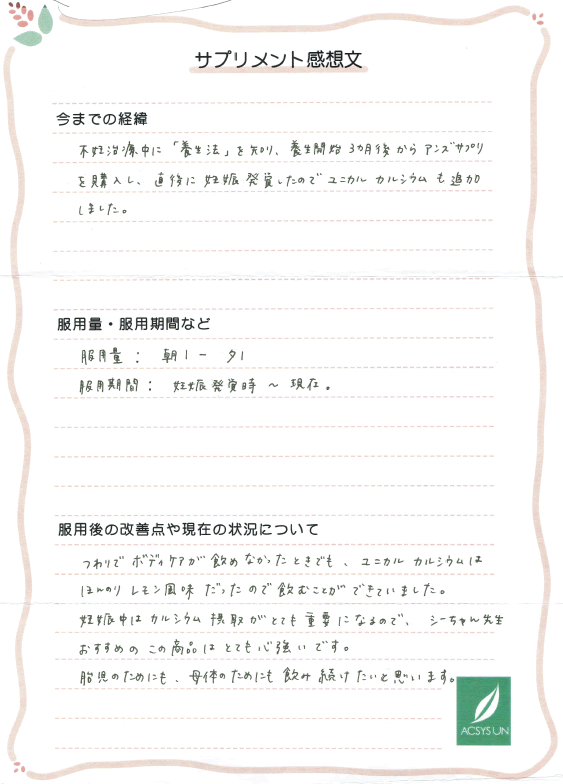 サプリメント感想文
今までの経緯
不妊治療中に「養生法」を知り、養生開始3カ月後からアンズサプリ
を購入し、直後に妊娠発覚したのでユニカルカルシウムも追加
しました。
服用量・服用期間など
服用量：朝1－夕1
服用期間：妊娠発覚時～現在。
服用後の改善点や現在の状況について
つわりでボディケアが飲めなかったときでも、ユニカルカルシウムは
ほんのりレモン風味だったので飲むことができていました。
妊娠中はカルシウム摂取がとても重要になるので、シーちゃん先生
おすすめのこの商品はとても心強いです。
胎児のためにも、母体のためにも飲み続けたいと思います。
ACSYSUN